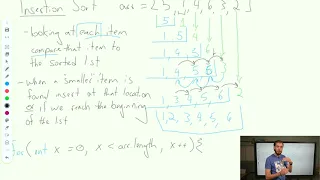 Insertion Sort   arr = [5, 1, 4, 6, 3, 2]
- looking at each item
compare that item to
the sorted lst
- when a "smaller" item is
found insert at that location
or if we reach the beginning
of the lst
5
1, 5
1, 4, 5
1, 4, 5, 6
1, 3, 4, 5, 6, 2
1, 2, 3, 4, 5, 6
for(int x = 0, x < arr.length, x++){